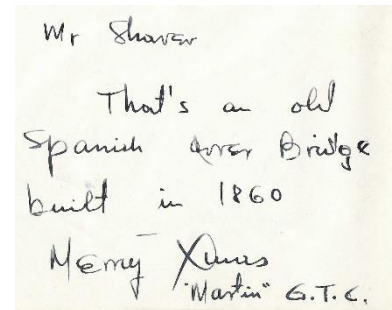 Mr Shaver
That's an old
Spanish over Bridge
built in 1860
Merry Xmas
"Martin" G.T.C.